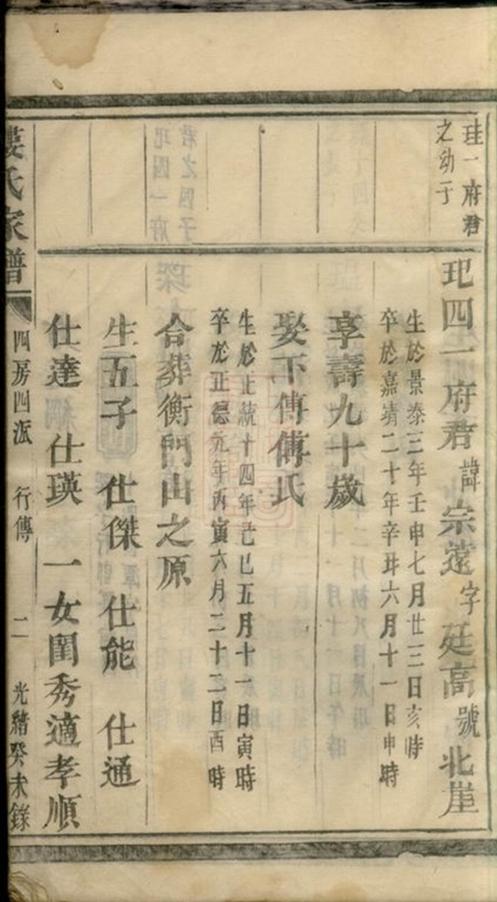 珪一府君
之幼子
玘四一府君 諱 宗遠 字 廷高 號 北崖
生於景泰三年壬申七月廿三日亥時
卒於嘉靖二十年辛丑六月十一日申時
享壽九十歲
娶下傅傅氏
生於正統十四年己巳五月十一日寅時
卒於正德元年丙寅六月二十二日酉時
合葬衡門山之原
生五子 仕傑 仕能 仕通
仕達 仕瑛 一女閨秀適孝順
氏家譜 四房四派 行傳 二 光緒癸未錄